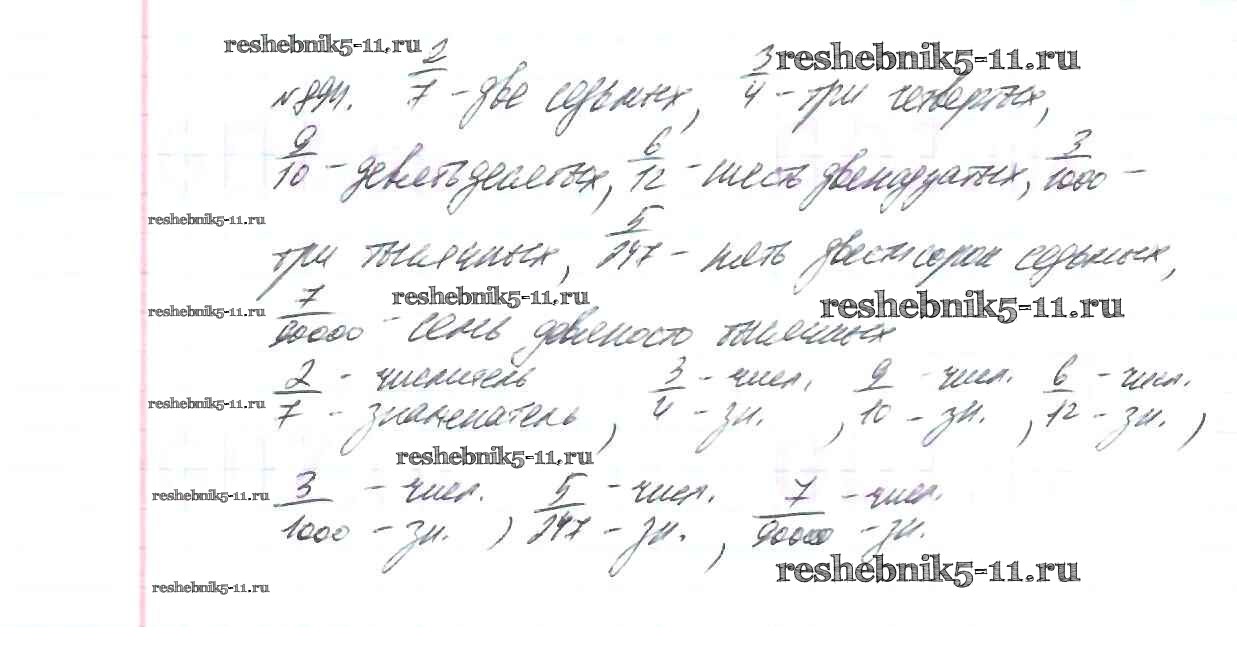 reshebnik5-11.ru
reshebnik5-11.ru
№ 891. 2/7 - две седьмых, 3/4 - три четвертых,
9/10 - девять десятых, 6/12 - шесть двенадцатых, 3/1000 -
reshebnik5-11.ru
три тысячных, 5/247 - пять двести сорок седьмых,
reshebnik5-11.ru
reshebnik5-11.ru
reshebnik5-11.ru
7/90000 - семь девяносто тысячных
2 - числитель 3 - числ. 9 - числ. 6 - числ.
reshebnik5-11.ru
7 - знаменатель, 4 - зн. , 10 - зн. , 12 - зн. ,
reshebnik5-11.ru
reshebnik5-11.ru
3 - числ. 5 - числ. 7 - числ.
1000 - зн. , 247 - зн. , 90000 - зн.
reshebnik5-11.ru
reshebnik5-11.ru